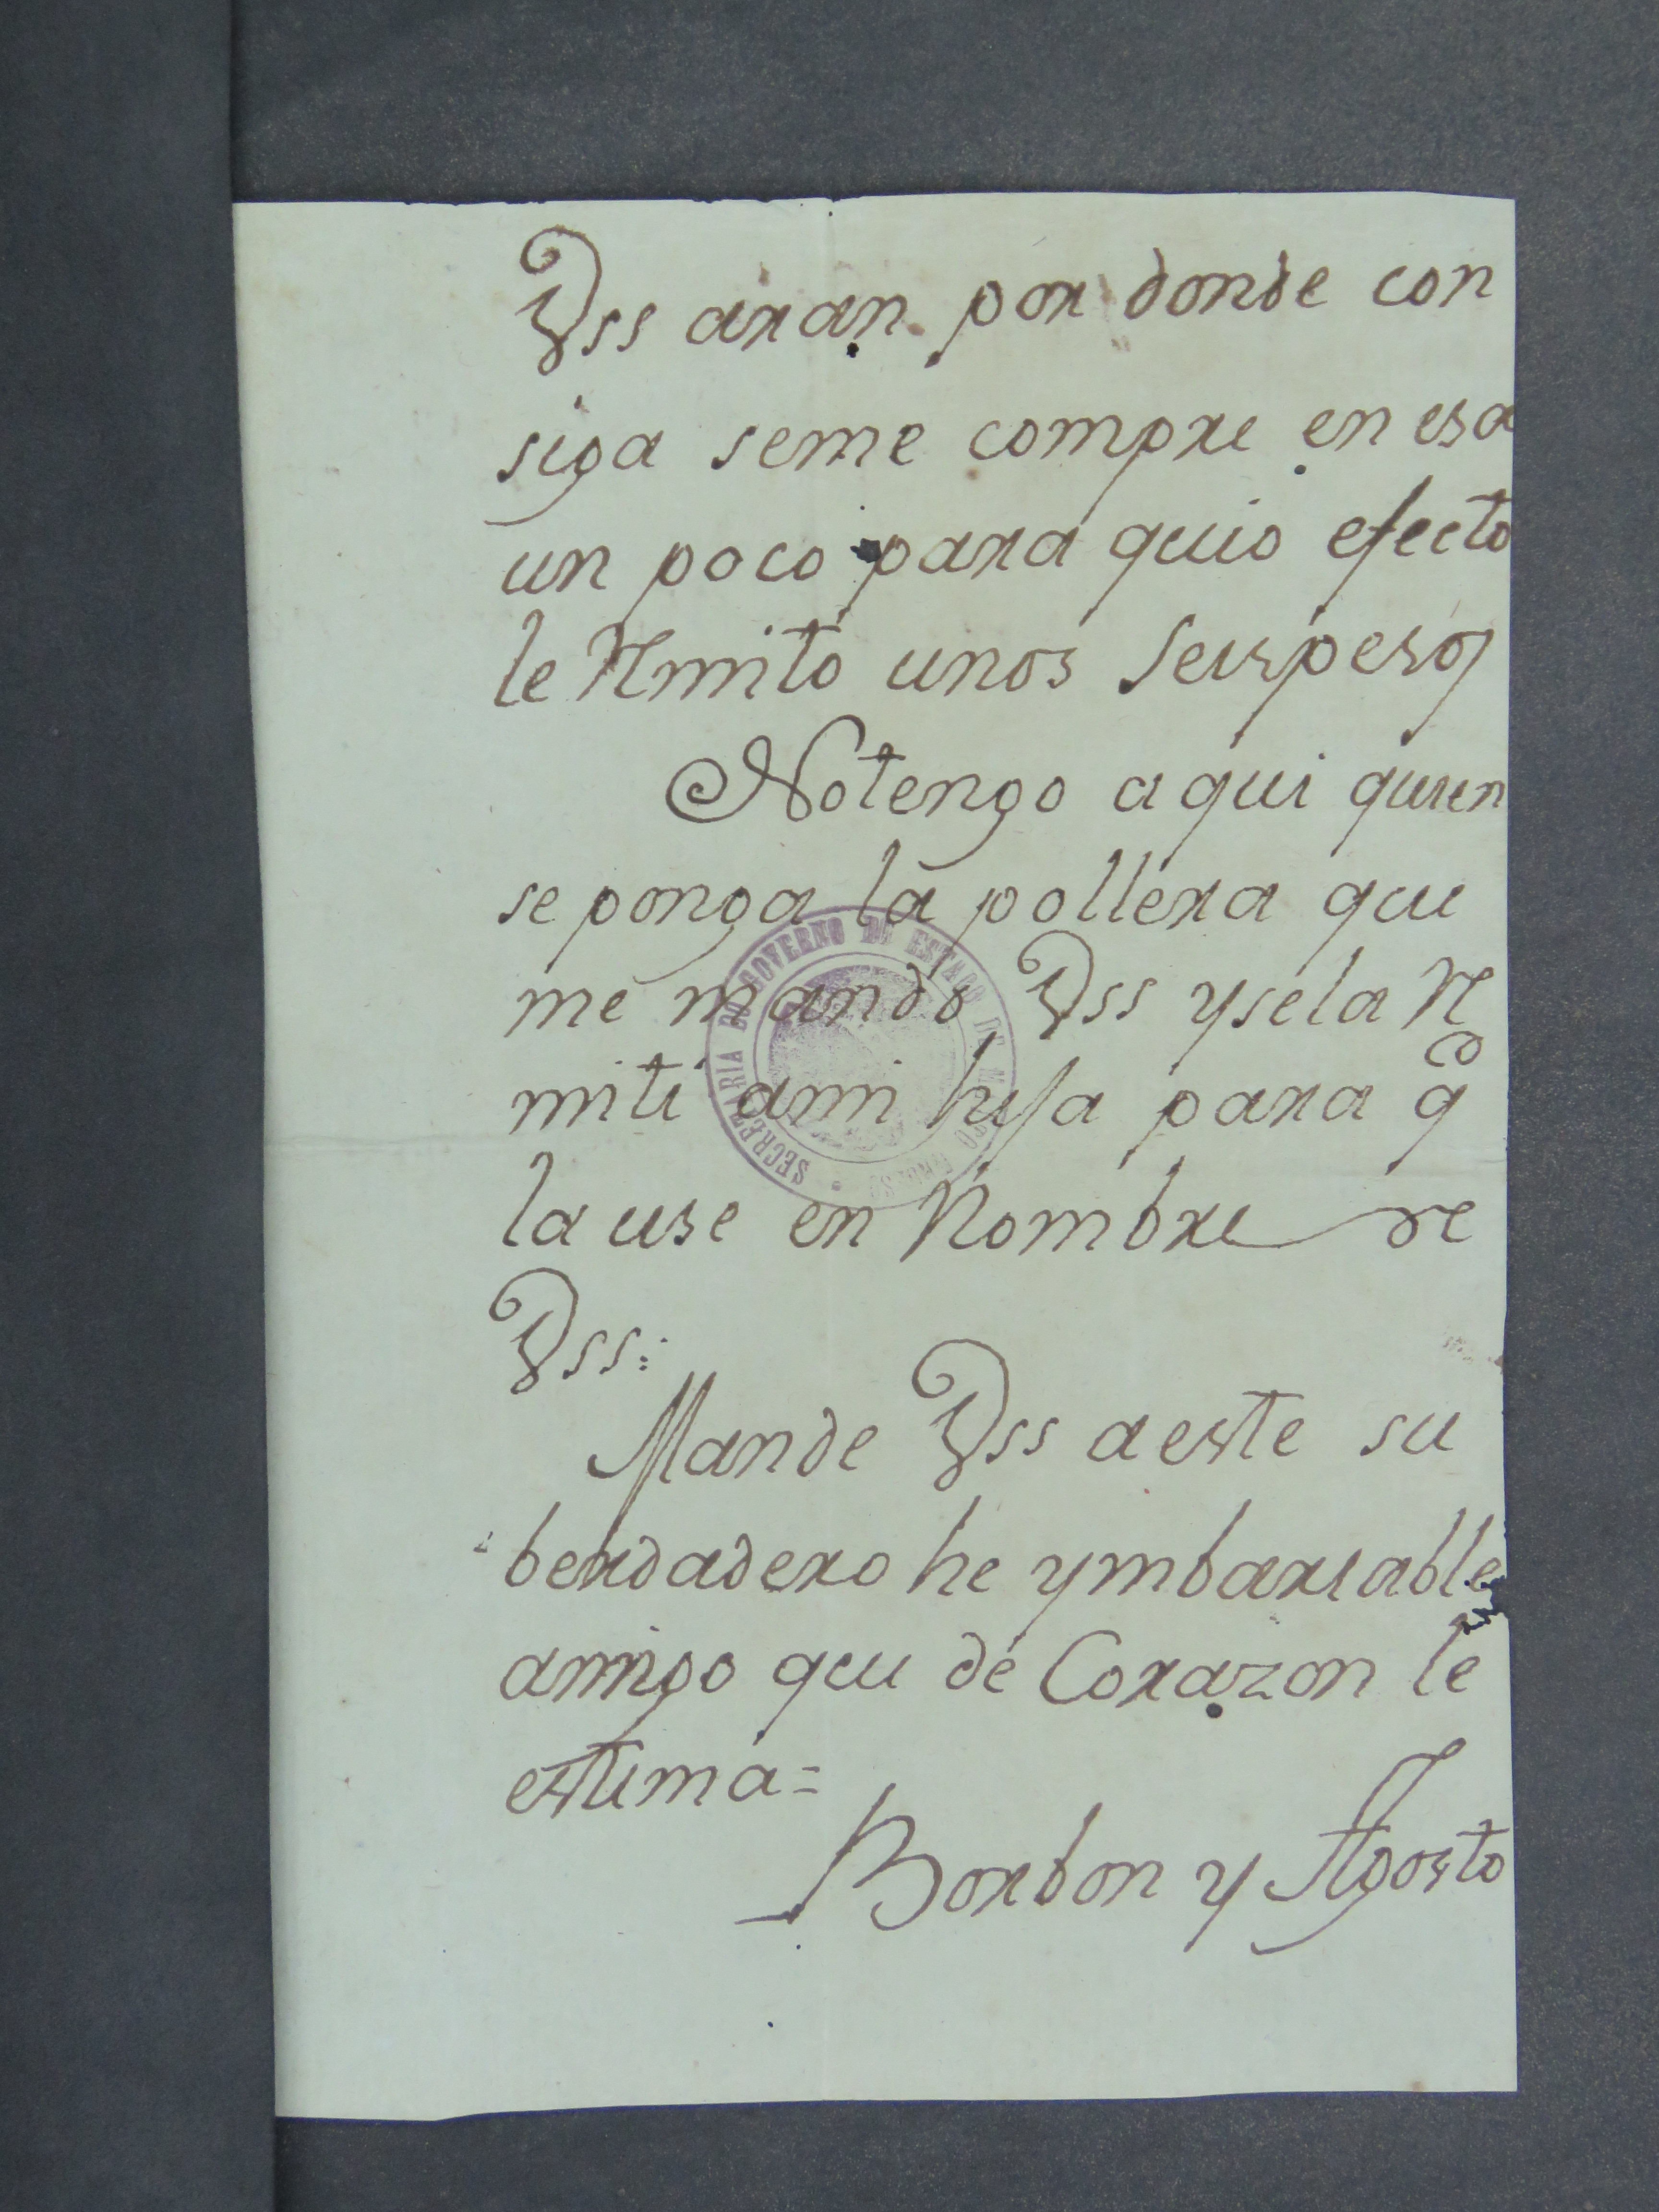 Vss aran por donde con
siga seme compre en esa
un poco para quio efecto
le Remito unos Seis pesos
Notengo aqui quien
se ponga la pollera que
me mando Vss ysela Re
miti ami hija para q̃
la use en Nombre de
Vss:
Mande Vss a este su
berdadero he ymbariable
amigo que de Corazon le
estima=
Borbon y Agosto
SECRETARIA DO GOVERNO DE ESTADO DE